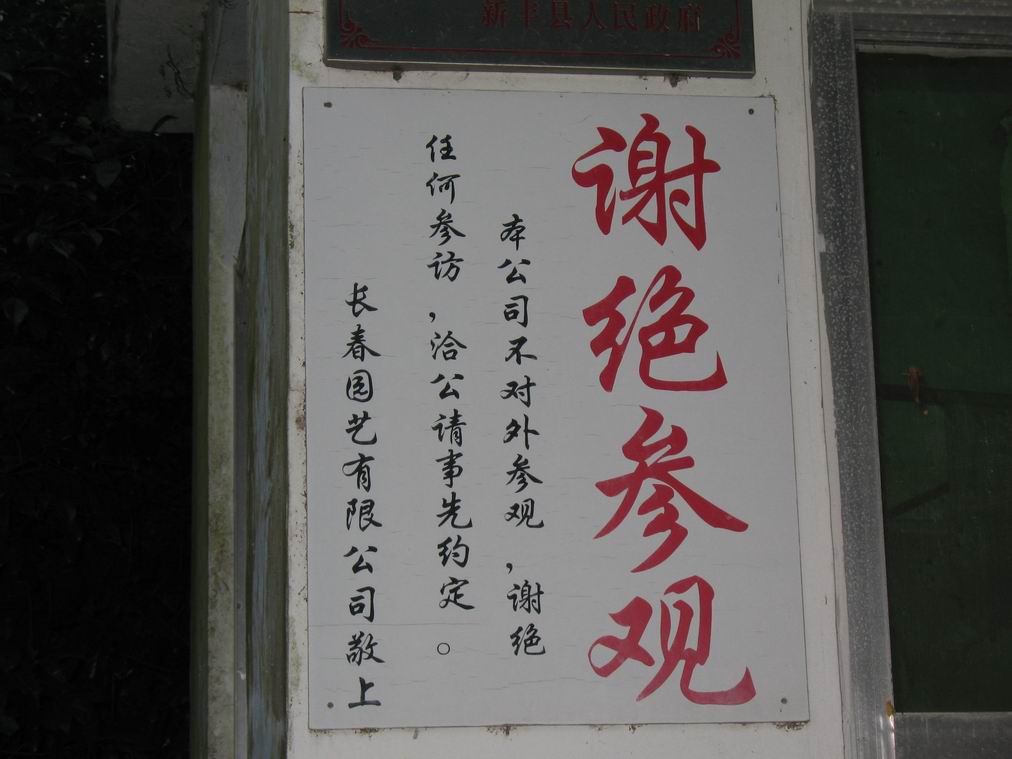 新丰县人民政府
谢绝参观
本公司不对外参观，谢绝
任何参访，洽公请事先约定。
长春园艺有限公司敬上